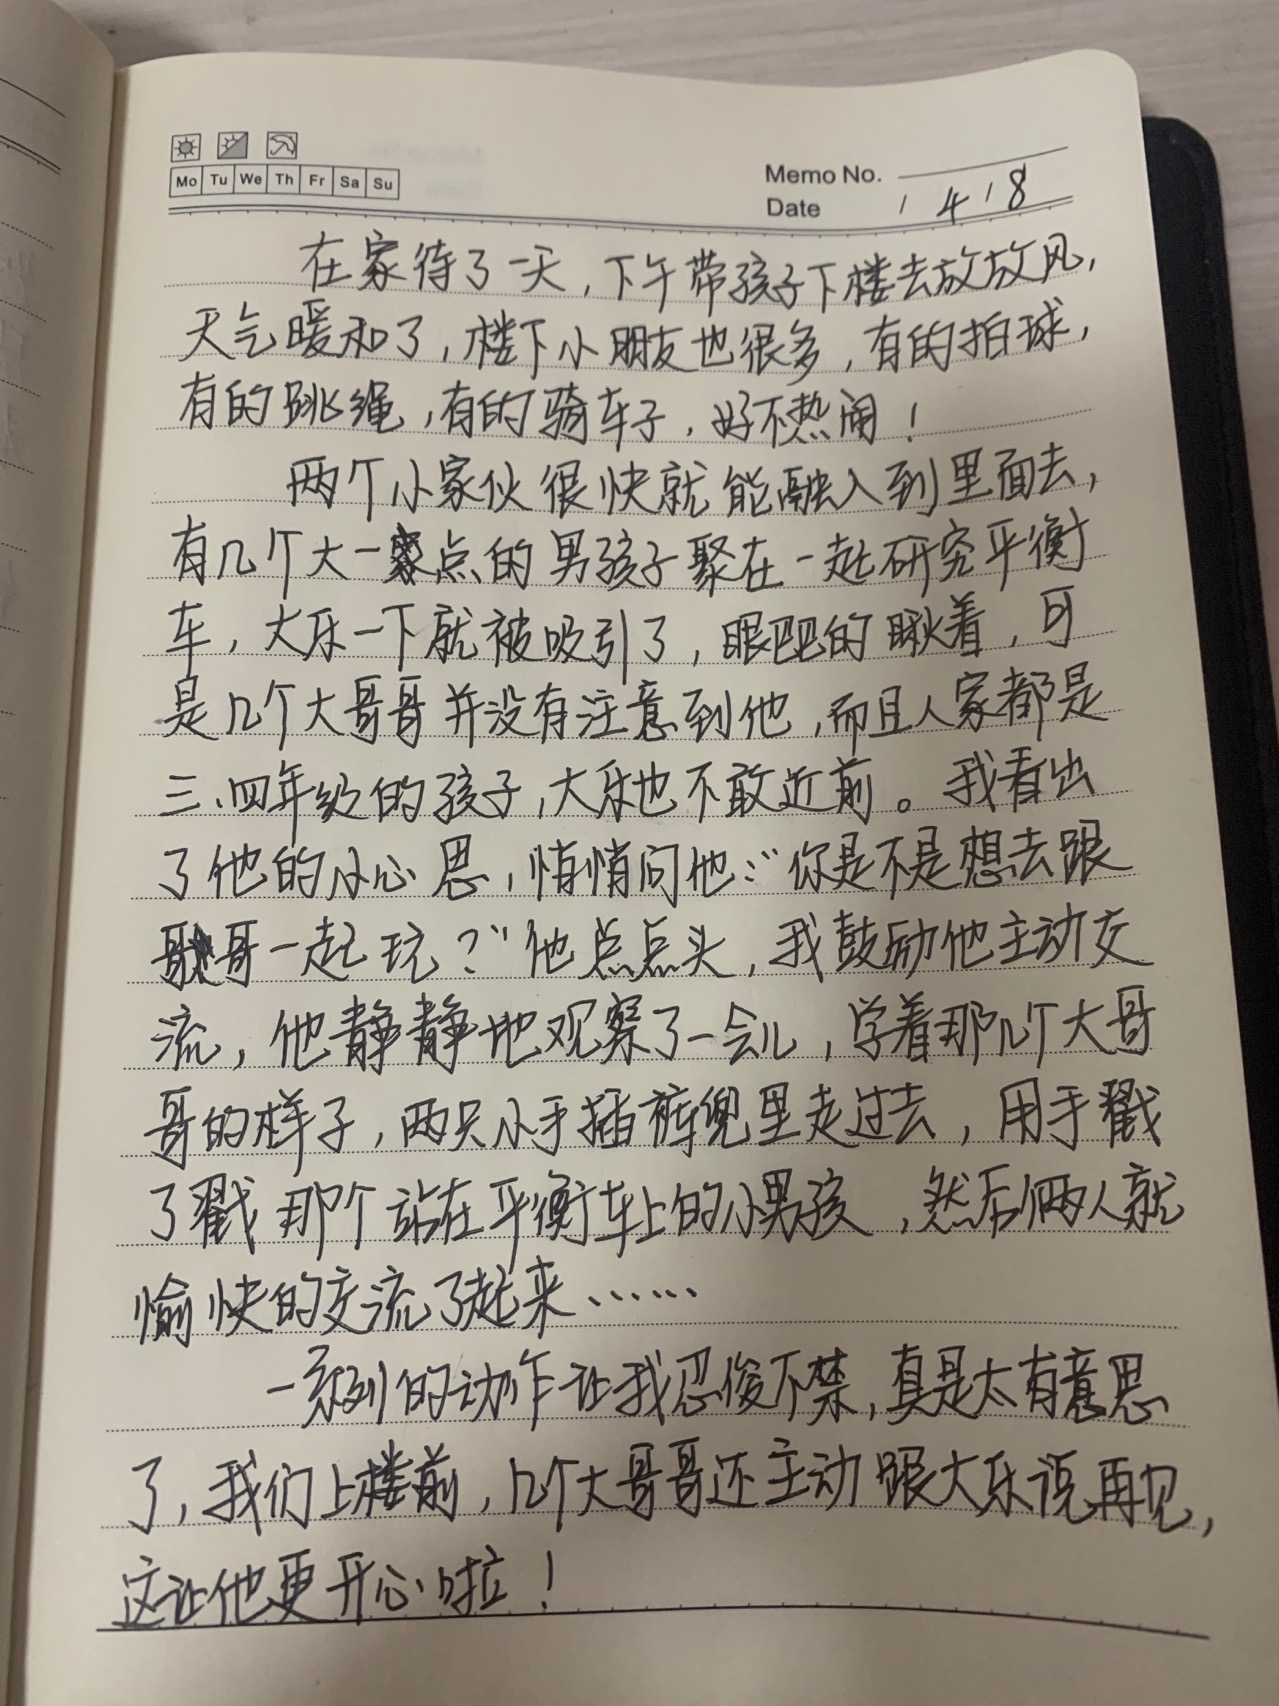 Mo Tu We Th Fr Sa Su
Memo No.
Date / 4 / 8
在家待了一天,下午带孩子下楼去放放风,
天气暖和了,楼下小朋友也很多,有的拍球,
有的跳绳,有的骑车子,好不热闹!
两个小家伙很快就能融入到里面去,
有几个大一点的男孩子聚在一起研究平衡
车,大乐一下就被吸引了,眼巴巴的瞅着,可
是几个大哥哥并没有注意到他,而且人家都是
三、四年级的孩子,大乐也不敢近前。我看出
了他的小心思,悄悄问他:“你是不是想去跟
哥哥一起玩?”他点点头,我鼓励他主动交
流,他静静地观察了一会儿,学着那几个大哥
哥的样子,两只小手插裤兜里走过去,用手戳
了戳那个站在平衡车上的小男孩,然后俩人就
愉快的交流了起来……
一系列的动作让我忍俊不禁,真是太有意思
了,我们上楼前,几个大哥哥还主动跟大乐说再见,
这让他更开心啦!